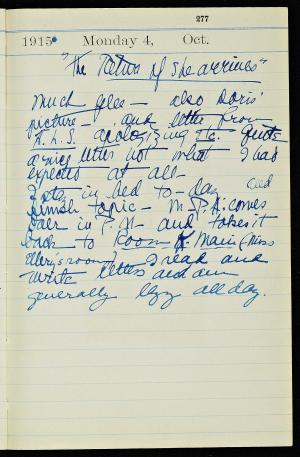 277
1915 Monday 4, Oct.
"The Return of She arrives"
Much glee - also Doris'
picture - and letter from
A.L.S. apologizing etc. Quite
a nice letter not what I had
expected at all.
I stay in bed to-day
finish topic - M.P.A. comes
over in P.M. and takes it
back to Room Main (Miss
Ellery's room). I read and
write letters and am
generally lazy all day.